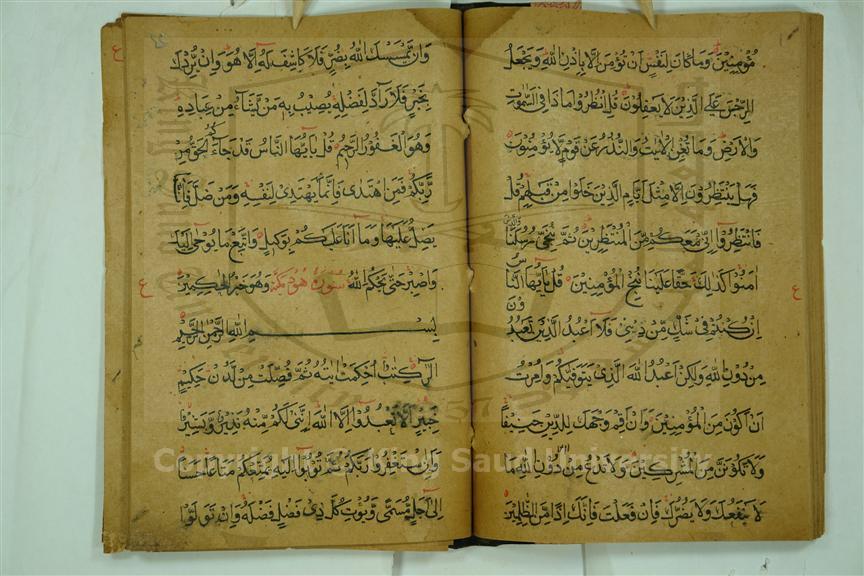 مُؤْمِنِينَ وَمَا كَانَ لِنَفْسٍ اَنْ تُؤْمِنَ اِلَّا بِاِذْنِ اللّٰهِ وَيَجْعَلُ
الرِّجْسَ عَلَى الَّذِينَ لَا يَعْقِلُونَ قُلِ انْظُرُوا مَاذَا فِى السَّمٰوٰتِ
وَالْاَرْضِ وَمَا تُغْنِى الْاٰيٰتُ وَالنُّذُرُ عَنْ قَوْمٍ لَا يُؤْمِنُونَ
فَهَلْ يَنْتَظِرُونَ اِلَّا مِثْلَ اَيَّامِ الَّذِينَ خَلَوْا مِنْ قَبْلِهِمْ قُلْ
فَانْتَظِرُوا اِنِّى مَعَكُمْ مِنَ الْمُنْتَظِرِينَ ثُمَّ نُنَجِّى رُسُلَنَا وَالَّذِينَ
اٰمَنُوا كَذٰلِكَ حَقًّا عَلَيْنَا نُنْجِ الْمُؤْمِنِينَ قُلْ يَا اَيُّهَا النَّاسُ
اِنْ كُنْتُمْ فِى شَكٍّ مِنْ دِينِى فَلَا اَعْبُدُ الَّذِينَ تَعْبُدُونَ
مِنْ دُونِ اللّٰهِ وَلٰكِنْ اَعْبُدُ اللّٰهَ الَّذِى يَتَوَفّٰيكُمْ وَاُمِرْتُ
اَنْ اَكُونَ مِنَ الْمُؤْمِنِينَ وَاَنْ اَقِمْ وَجْهَكَ لِلدِّينِ حَنِيفًا
وَلَا تَكُونَنَّ مِنَ الْمُشْرِكِينَ وَلَا تَدْعُ مِنْ دُونِ اللّٰهِ مَا
لَا يَنْفَعُكَ وَلَا يَضُرُّكَ فَاِنْ فَعَلْتَ فَاِنَّكَ اِذًا مِنَ الظّٰلِمِينَ
وَاِنْ يَمْسَسْكَ اللّٰهُ بِضُرٍّ فَلَا كَاشِفَ لَهُ اِلَّا هُوَ وَاِنْ يُرِدْكَ
بِخَيْرٍ فَلَا رَادَّ لِفَضْلِهِ يُصِيبُ بِهِ مَنْ يَشَاءُ مِنْ عِبَادِهِ
وَهُوَ الْغَفُورُ الرَّحِيمُ قُلْ يَا اَيُّهَا النَّاسُ قَدْ جَاءَكُمُ الْحَقُّ مِنْ
رَبِّكُمْ فَمَنِ اهْتَدٰى فَاِنَّمَا يَهْتَدِى لِنَفْسِهِ وَمَنْ ضَلَّ فَاِنَّمَا
يَضِلُّ عَلَيْهَا وَمَا اَنَا عَلَيْكُمْ بِوَكِيلٍ وَاتَّبِعْ مَا يُوحٰى اِلَيْكَ
وَاصْبِرْ حَتّٰى يَحْكُمَ اللّٰهُ سورة هود مكية وَهُوَ خَيْرُ الْحٰكِمِينَ
بِسْمِ اللّٰهِ الرَّحْمٰنِ الرَّحِيمِ
الٓرٰ كِتٰبٌ اُحْكِمَتْ اٰيٰتُهُ ثُمَّ فُصِّلَتْ مِنْ لَدُنْ حَكِيمٍ
خَبِيرٍ اَلَّا تَعْبُدُوا اِلَّا اللّٰهَ اِنَّنِى لَكُمْ مِنْهُ نَذِيرٌ وَبَشِيرٌ
وَاَنِ اسْتَغْفِرُوا رَبَّكُمْ ثُمَّ تُوبُوا اِلَيْهِ يُمَتِّعْكُمْ مَتَاعًا حَسَنًا
اِلٰى اَجَلٍ مُسَمًّى وَيُؤْتِ كُلَّ ذِى فَضْلٍ فَضْلَهُ وَاِنْ تَوَلَّوْا
ع
ع
ع
Copyright © King Saud University